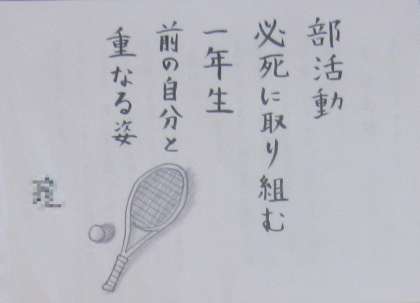 部活動
必死に取り組む
一年生
前の自分と
重なる姿